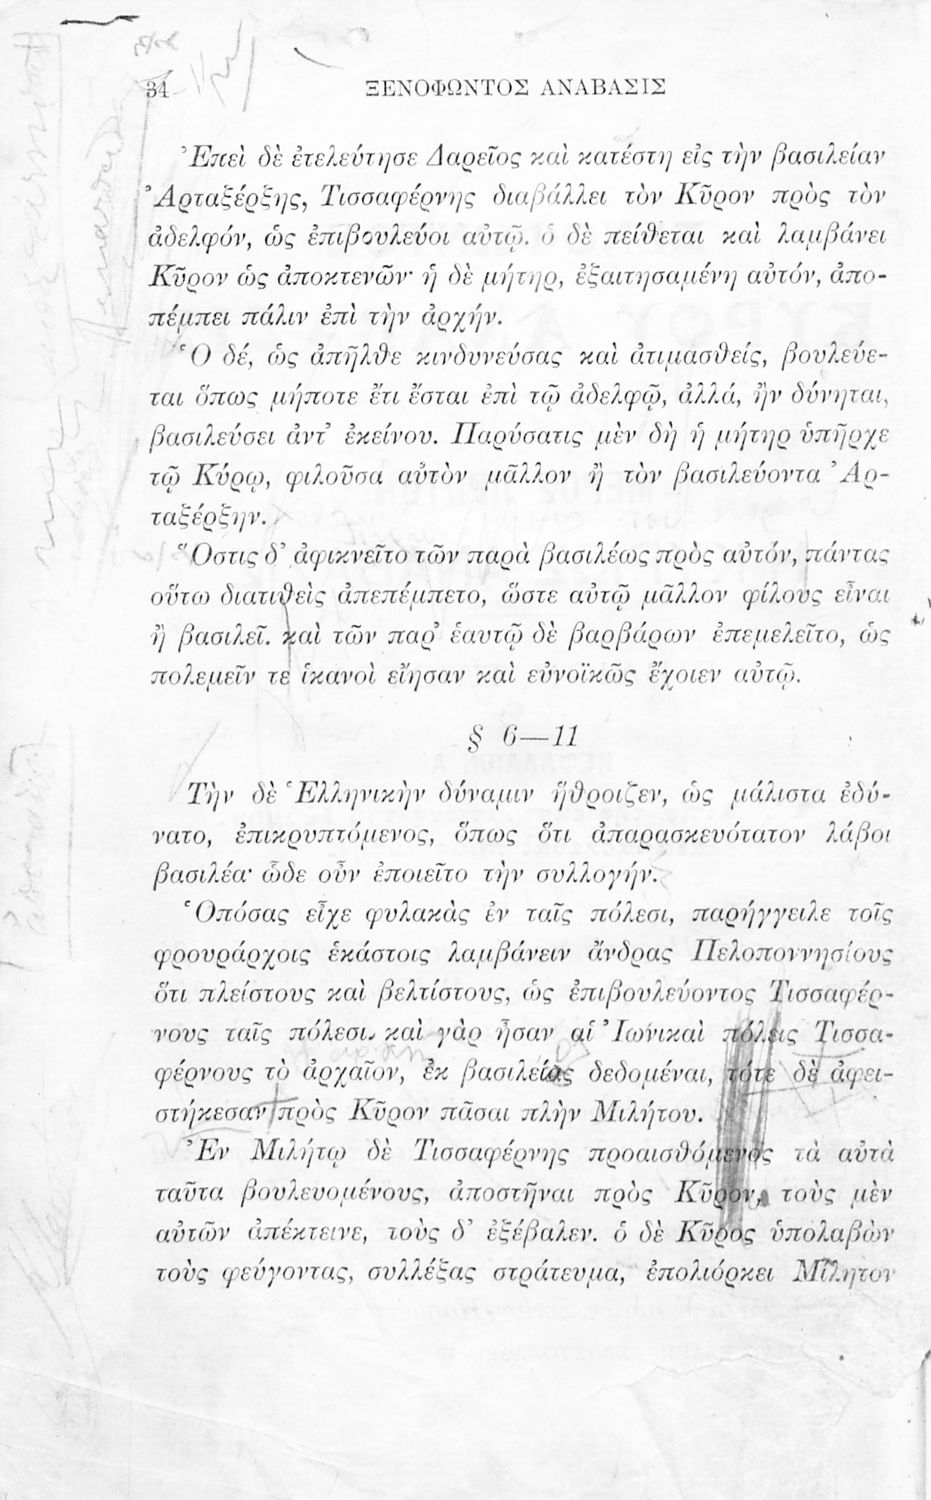 34
ΞΕΝΟΦΩΝΤΟΣ ΑΝΑΒΑΣΙΣ
Ἐπεὶ δὲ ἐτελεύτησε Δαρεῖος καὶ κατέστη εἰς τὴν βασιλείαν
Ἀρταξέρξης, Τισσαφέρνης διαβάλλει τὸν Κῦρον πρὸς τὸν
ἀδελφόν, ὡς ἐπιβουλεύοι αὐτῷ. ὁ δὲ πείθεται καὶ λαμβάνει
Κῦρον ὡς ἀποκτενῶν· ἡ δὲ μήτηρ, ἐξαιτησαμένη αὐτόν, ἀπο-
πέμπει πάλιν ἐπὶ τὴν ἀρχήν.
Ὁ δέ, ὡς ἀπῆλθε κινδυνεύσας καὶ ἀτιμασθείς, βουλεύε-
ται ὅπως μήποτε ἔτι ἔσται ἐπὶ τῷ ἀδελφῷ, ἀλλά, ἢν δύνηται,
βασιλεύσει ἀντ' ἐκείνου. Παρύσατις μὲν δὴ ἡ μήτηρ ὑπῆρχε
τῷ Κύρῳ, φιλοῦσα αὐτὸν μᾶλλον ἢ τὸν βασιλεύοντα Ἀρ-
ταξέρξην.
Ὅστις δ' ἀφικνεῖτο τῶν παρὰ βασιλέως πρὸς αὐτόν, πάντας
οὕτω διατιθεὶς ἀπεπέμπετο, ὥστε αὐτῷ μᾶλλον φίλους εἶναι
ἢ βασιλεῖ. καὶ τῶν παρ' ἑαυτῷ δὲ βαρβάρων ἐπεμελεῖτο, ὡς
πολεμεῖν τε ἱκανοὶ εἴησαν καὶ εὐνοϊκῶς ἔχοιεν αὐτῷ.
§ 6—11
Τὴν δὲ Ἑλληνικὴν δύναμιν ἤθροιζεν, ὡς μάλιστα ἐδύ-
νατο, ἐπικρυπτόμενος, ὅπως ὅτι ἀπαρασκευότατον λάβοι
βασιλέα· ὧδε οὖν ἐποιεῖτο τὴν συλλογήν.
Ὁπόσας εἶχε φυλακὰς ἐν ταῖς πόλεσι, παρήγγειλε τοῖς
φρουράρχοις ἑκάστοις λαμβάνειν ἄνδρας Πελοποννησίους
ὅτι πλείστους καὶ βελτίστους, ὡς ἐπιβουλεύοντος Τισσαφέρ-
νους ταῖς πόλεσι. καὶ γὰρ ἦσαν αἱ Ἰωνικαὶ πόλεις Τισσα-
φέρνους τὸ ἀρχαῖον, ἐκ βασιλείας δεδομέναι, τότε δὲ ἀφει-
στήκεσαν πρὸς Κῦρον πᾶσαι πλὴν Μιλήτου.
Ἐν Μιλήτῳ δὲ Τισσαφέρνης προαισθόμενος τὰ αὐτὰ
ταῦτα βουλευομένους, ἀποστῆναι πρὸς Κῦρον, τοὺς μὲν
αὐτῶν ἀπέκτεινε, τοὺς δ' ἐξέβαλεν. ὁ δὲ Κῦρος ὑπολαβὼν
τοὺς φεύγοντας, συλλέξας στράτευμα, ἐπολιόρκει Μίλητον